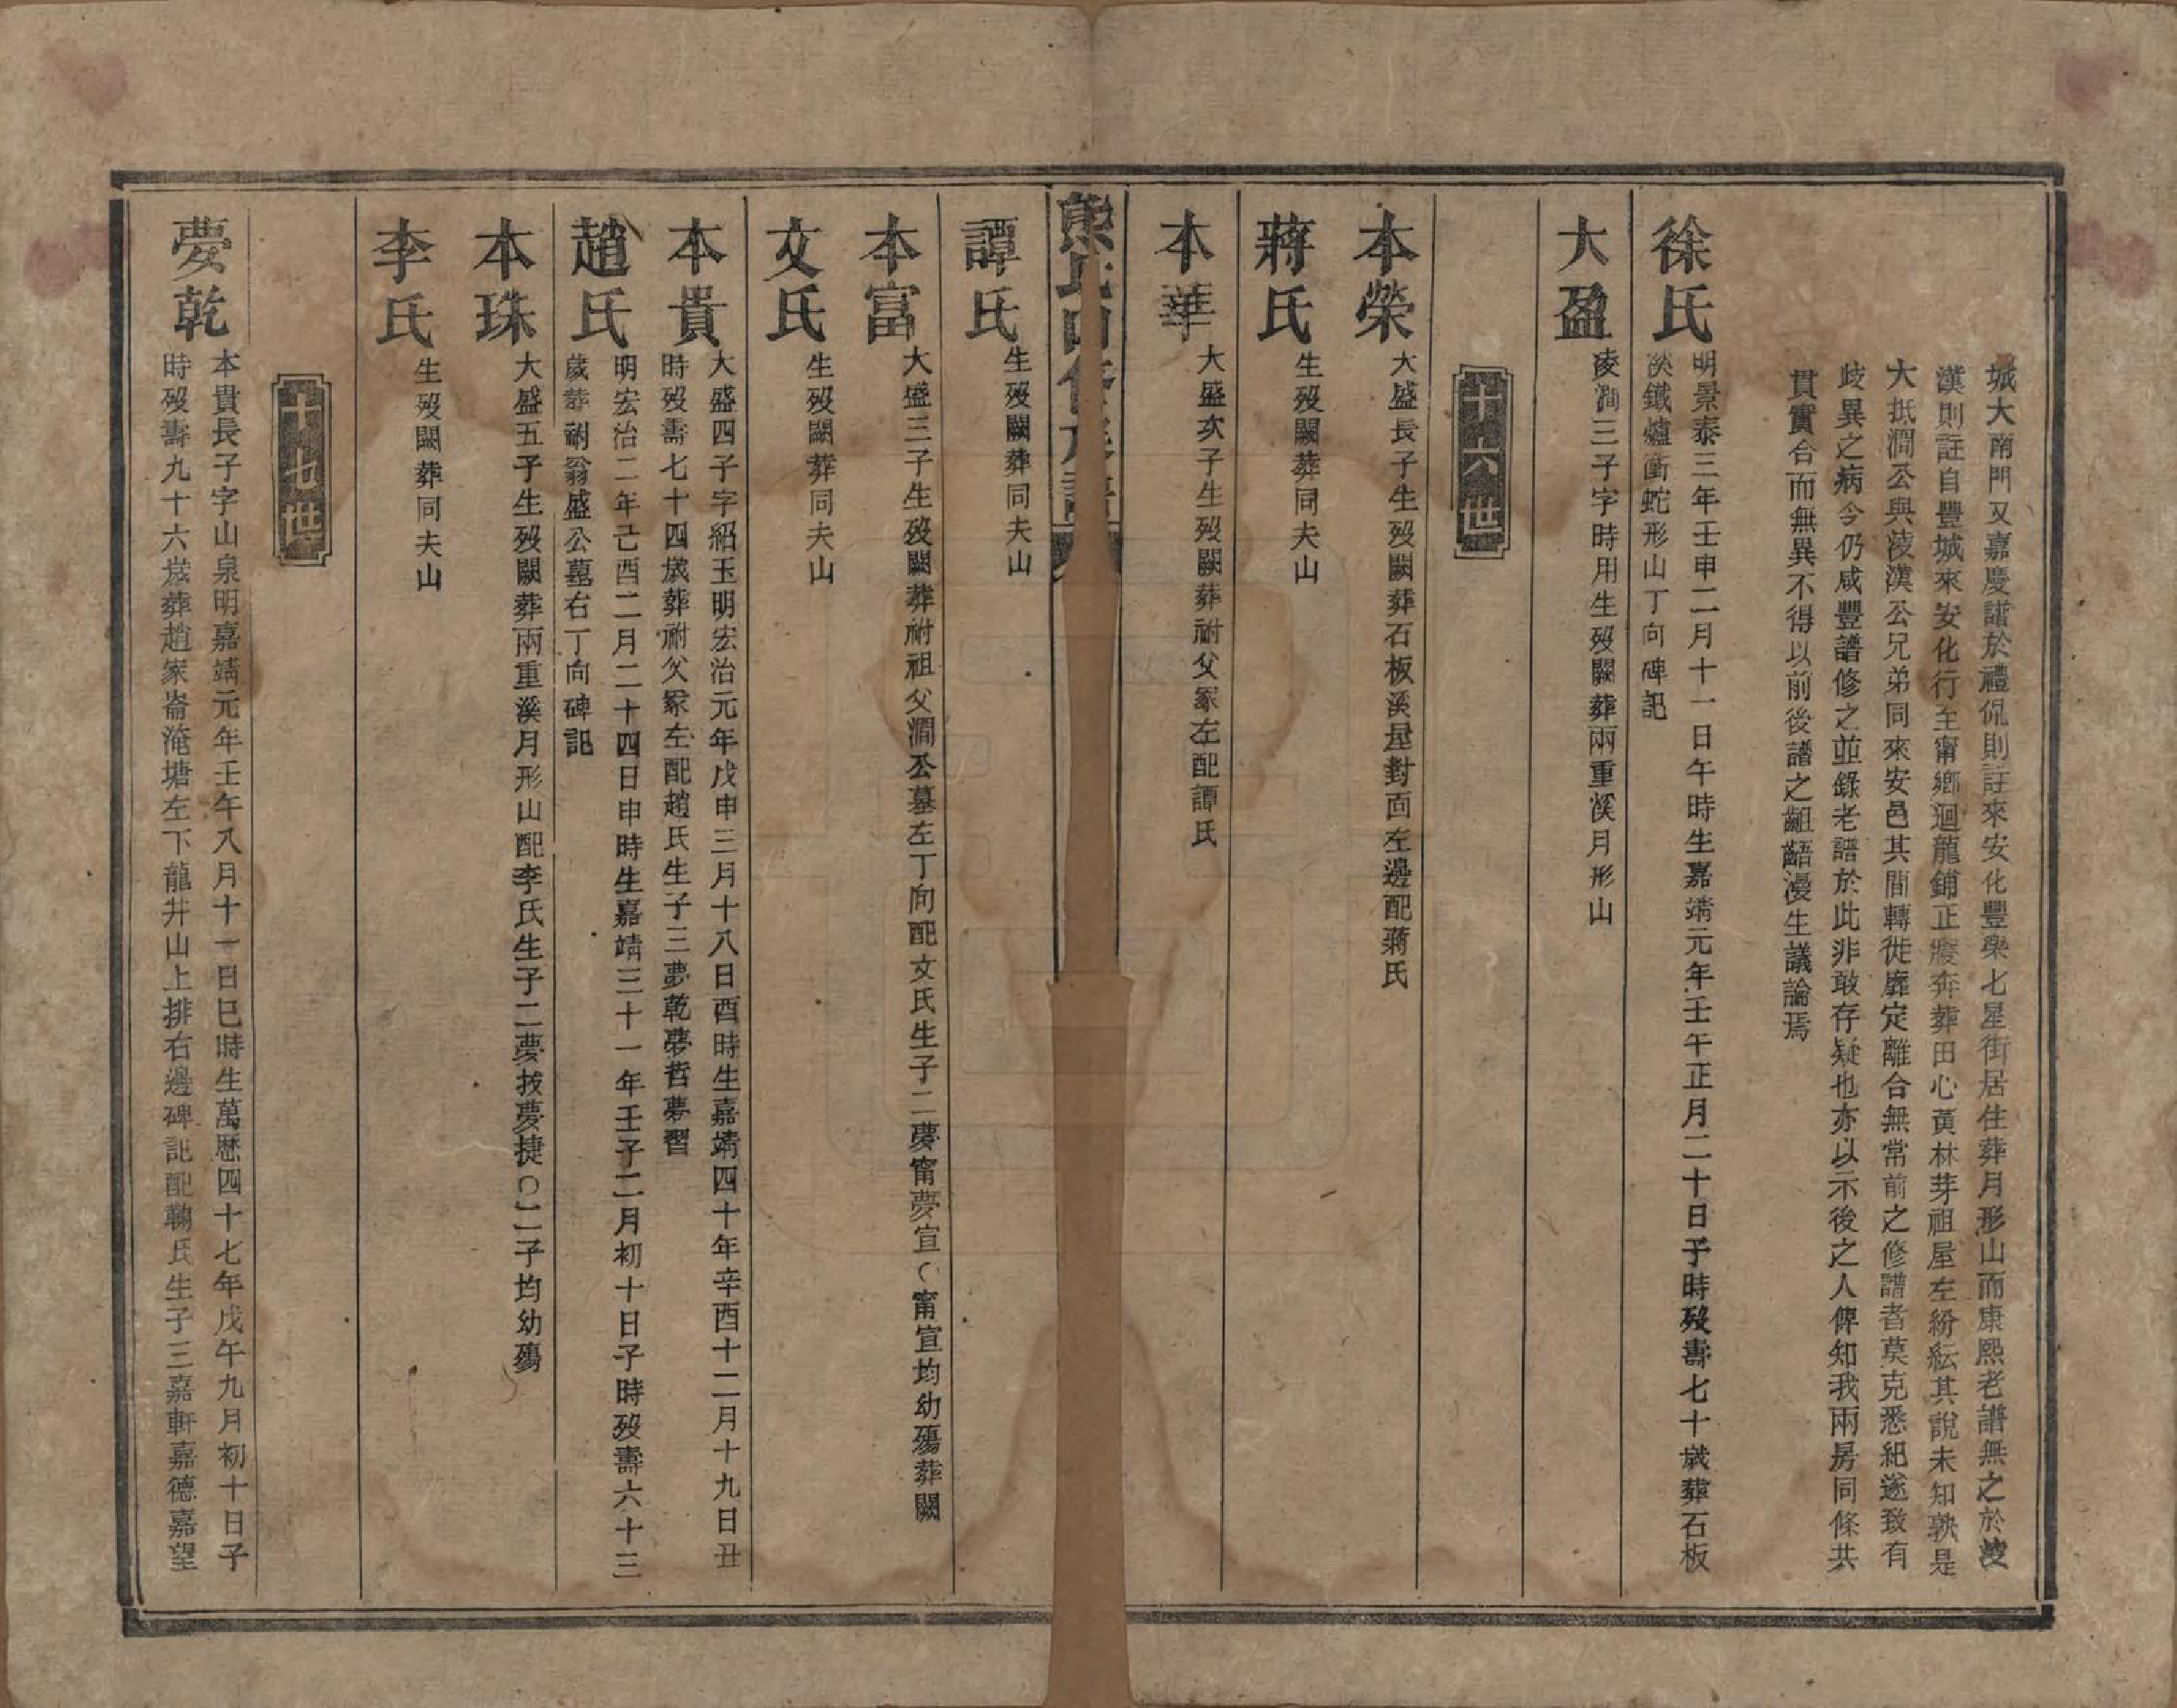 城大南門又嘉慶譜於禮侃則註來安化豐樂七星街居住葬月形山而康熙老譜無之於淩
漢則註自豐城來安化行至甯鄉迴龍鋪正𢊍奔葬田心黃林芽祖屋左紛紜其說未知孰是
大抵澗公與淩漢公兄弟同來安邑其間轉徙靡定離合無常前之修譜者莫克悉紀遂致有
歧異之病今仍咸豐譜修之並錄老譜於此非敢存疑也亦以示後之人俾知我兩房同條共
貫實合而無異不得以前後譜之齟齬漫生議論焉
徐氏
明景泰三年壬申二月十一日午時生嘉靖元年壬午正月二十日子時歿壽七十歲葬石板
溪鐵爐衝蛇形山丁向碑記
大盈
淩澗三子字時用生歿闕葬兩重溪月形山
十六世
本榮
大盛長子生歿闕葬石板溪屋對面左邊配蔣氏
蔣氏
生歿闕葬同夫山
本華
大盛次子生歿闕葬祔父冢左配譚氏
熊氏四修族譜
譚氏
生歿闕葬同夫山
本富
大盛三子生歿闕葬祔祖父澗公墓左丁向配文氏生子二夢甯夢宣○甯宣均幼殤葬闕
文氏
生歿闕葬同夫山
本貴
大盛四子字紹玉明宏治元年戊申三月十八日酉時生嘉靖四十年辛酉十二月十九日丑
時歿壽七十四歲葬祔父冢左配趙氏生子三夢乾夢哲夢習
趙氏
明宏治二年己酉二月二十四日申時生嘉靖三十一年壬子二月初十日子時歿壽六十三
歲葬祔翁盛公墓右丁向碑記
本珠
大盛五子生歿闕葬兩重溪月形山配李氏生子二夢拔夢捷○二子均幼殤
李氏
生歿闕葬同夫山
十七世
夢乾
本貴長子字山泉明嘉靖元年壬午八月十一日巳時生萬歷四十七年戊午九月初十日子
時歿壽九十六歲葬趙家崙淹塘左下龍井山上排右邊碑記配鞠氏生子三嘉軒嘉德嘉望